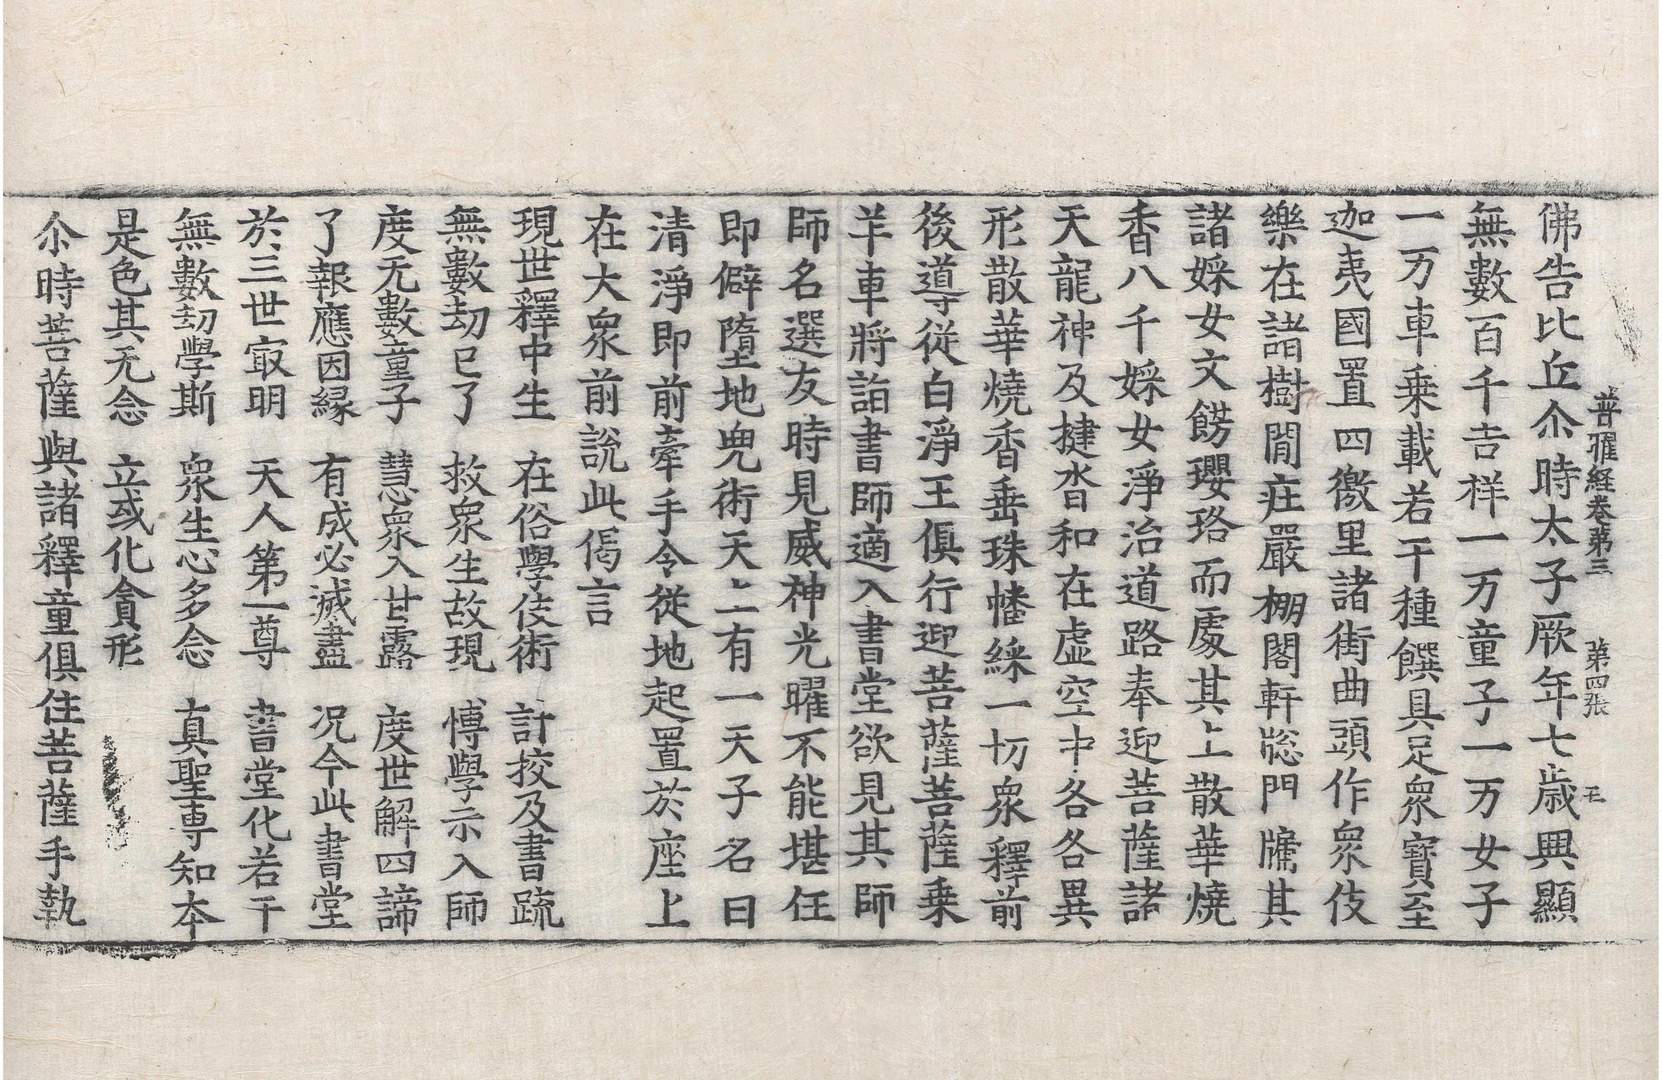 普曜経巻第三　第四張
佛告比丘尒時太子厥年七歲興顯
無數百千吉祥一万童子一万女子
一万車乗載若干種饌具足衆寳至
迦夷國置四徼里諸街曲頭作衆伎
樂在諸樹閒庄嚴棚閣軒牎門牖其
諸婇女文餝瓔珞而處其上散華燒
香八千婇女淨治道路奉迎菩薩諸
天龍神及揵沓和在虛空中各各異
形散華燒香垂珠幡綵一切衆釋前
後導從白淨王俱行迎菩薩菩薩乗
羊車將詣書師適入書堂欲見其師
師名選友時見威神光曜不能堪任
即僻墮地兜術天上有一天子名曰
清淨即前牽手令從地起置於座上
在大衆前說此偈言
現世釋中生　在俗學伎術　計挍及書䟽
無數劫已了　救衆生故現　愽學示入師
度无數童子　慧衆入甘露　度世解四諦
了報應因緣　有成必滅盡　况今此書堂
於三世㝡明　天人第一尊　書堂化若干
無數劫學斯　衆生心多念　真聖専知夲
是色其无念　立或化貪形
尒時菩薩與諸釋童俱住菩薩手執